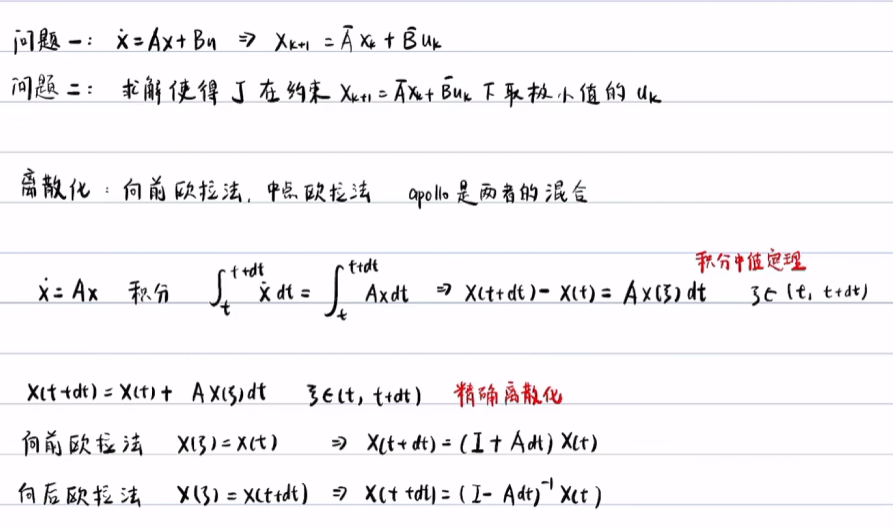 问题一: ẋ=Ax+Bu ⇒ Xₖ₊₁ = A̅ xₖ + B̅ uₖ
问题二: 求解使得 J 在约束 Xₖ₊₁=A̅xₖ+B̅uₖ 下取极小值的 uₖ
离散化: 向前欧拉法, 中点欧拉法 apollo是两者的混合
积分中值定理
ẋ=Ax 积分 ∫ₜ^(t+dt) ẋ dt = ∫ₜ^(t+dt) Ax dt ⇒ X(t+dt) - X(t) = AX(ξ)dt ξ∈(t, t+dt)
X(t+dt)=X(t)+ AX(ξ)dt ξ∈(t, t+dt) 精确离散化
向前欧拉法 X(ξ)=X(t) ⇒ X(t+dt)=(I+Adt)X(t)
向后欧拉法 X(ξ)=X(t+dt) ⇒ X(t+dt)=(I-Adt)⁻¹X(t)